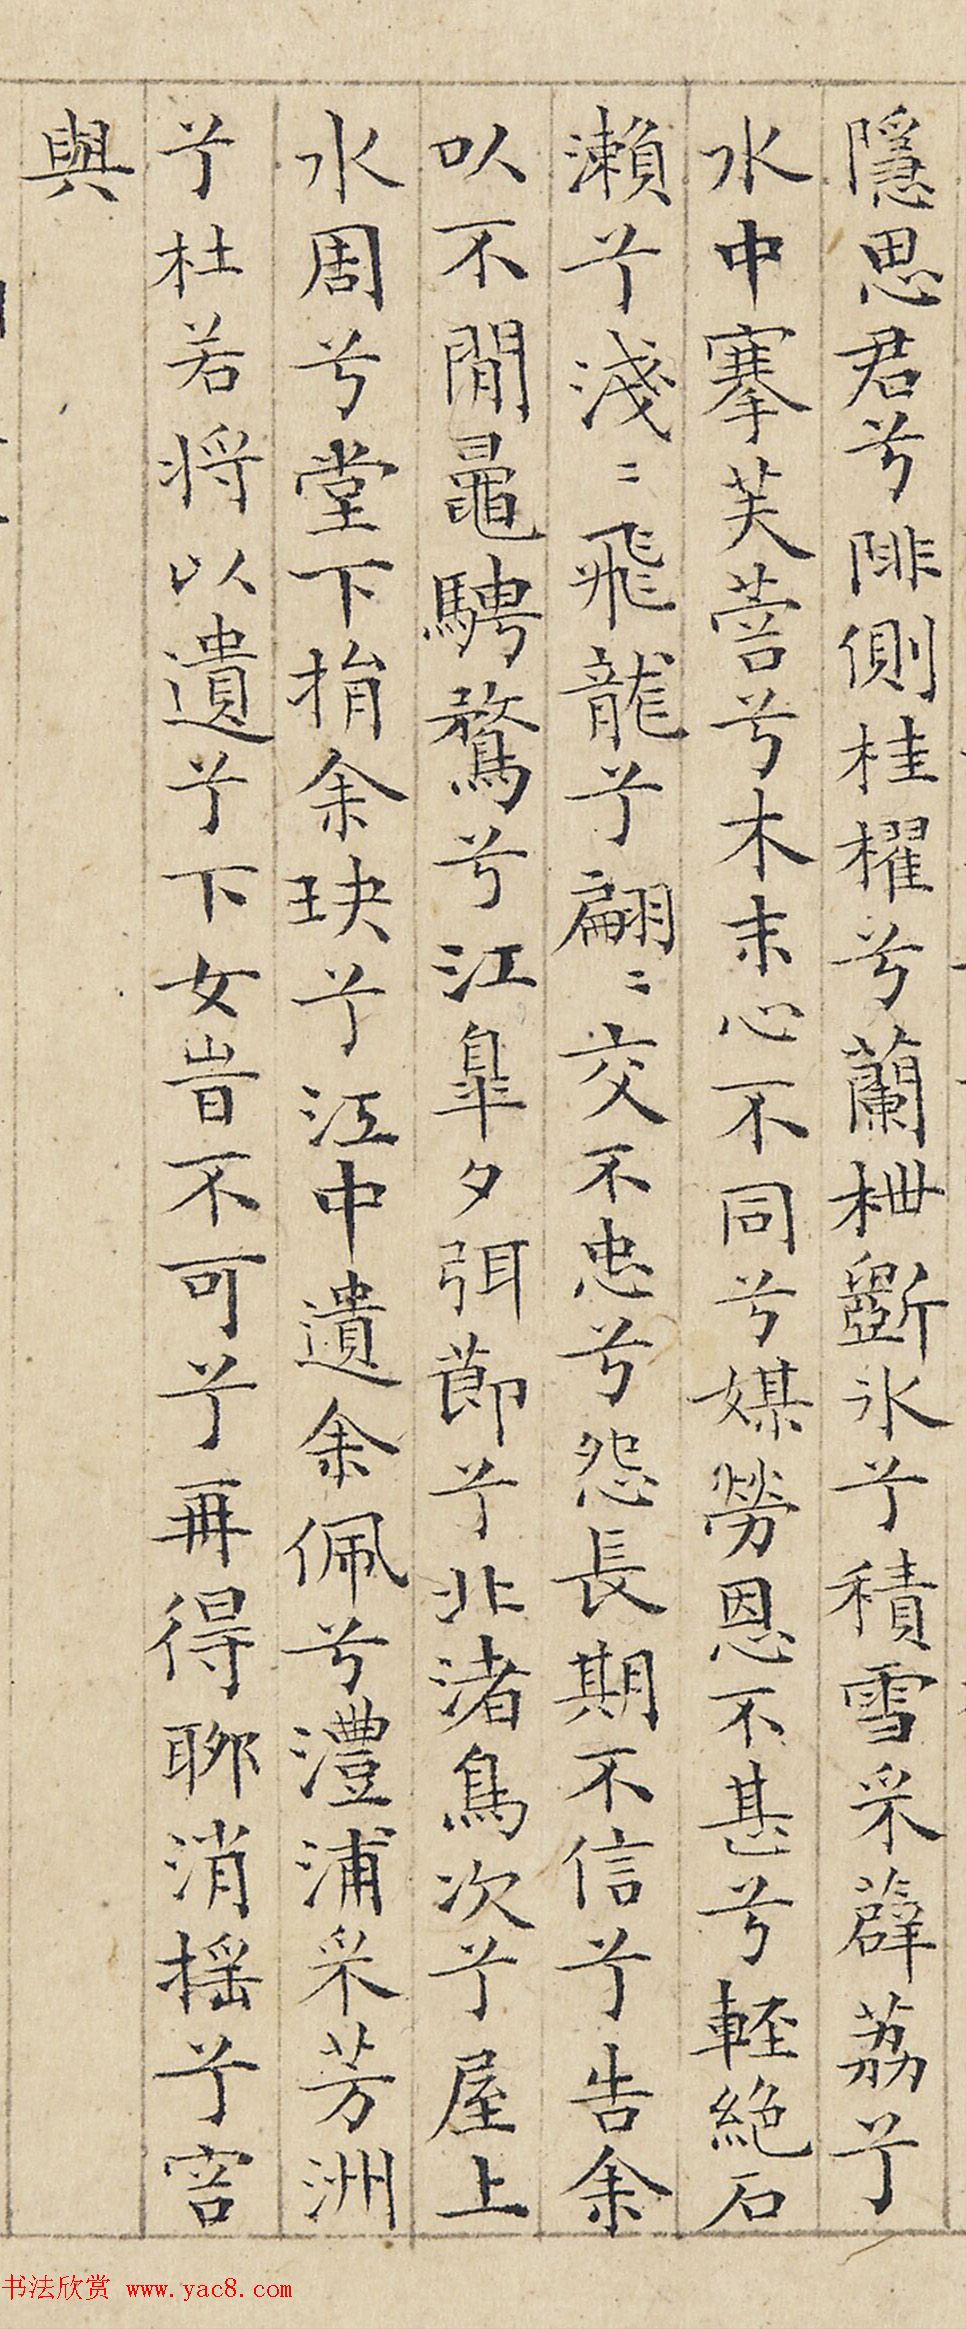 隱思君兮陫側桂櫂兮蘭枻斵氷兮積雪采薜荔兮
水中搴芙蓉兮木末心不同兮媒勞恩不甚兮輕絶石
瀨兮淺〻飛龍兮翩〻交不忠兮怨長期不信兮告余
以不閒鼂騁騖兮江皐夕弭節兮北渚鳥次兮屋上
水周兮堂下捐余玦兮江中遺余佩兮澧浦采芳洲
兮杜若将以遺兮下女旹不可兮再得聊消揺兮容
與
书法欣赏 www.yac8.com